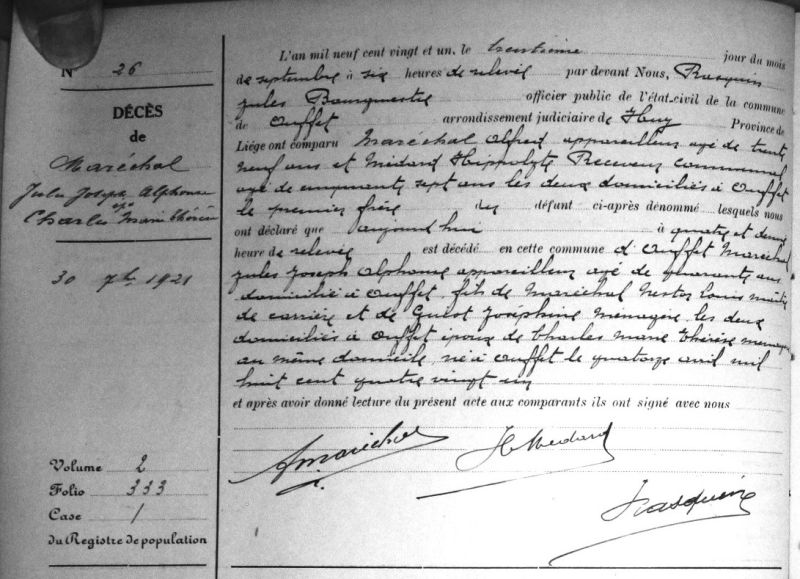 N° 26
DÉCÈS
de
Maréchal
Jules Joseph Alphonse
épx
Charles Marie Thérèse
30 7bre 1921
Volume 2
Folio 333
Case 1
du Registre de population
L'an mil neuf cent vingt et un, le trentième jour du mois
de septembre à six heures de relevée par devant Nous, Rasquin
Jules Bourgmestre officier public de l'état-civil de la commune
de Ouffet arrondissement judiciaire de Huy Province de
Liége ont comparu Maréchal Alfred appareilleur agé de trente
neuf ans et Médard Hippolyte Receveur communal
agé de cinquante sept ans les deux domiciliés à Ouffet
le premier frère du défunt ci-après dénommé lesquels nous
ont déclaré que aujourd'hui à quatre et demie
heure de relevée est décédé en cette commune d'Ouffet Maréchal
Jules Joseph Alphonse appareilleur agé de quarante ans
domicilié à Ouffet, fils de Maréchal Nestor Louis maître
de carrière et de Guiot Joséphine Ménagère les deux
domiciliés à Ouffet époux de Charles Marie Thérèse ménagère
au même domicile, né à Ouffet le quatorze avril mil
huit cent quatre vingt un
et après avoir donné lecture du présent acte aux comparants ils ont signé avec nous
A Maréchal
H Médard
J Rasquin